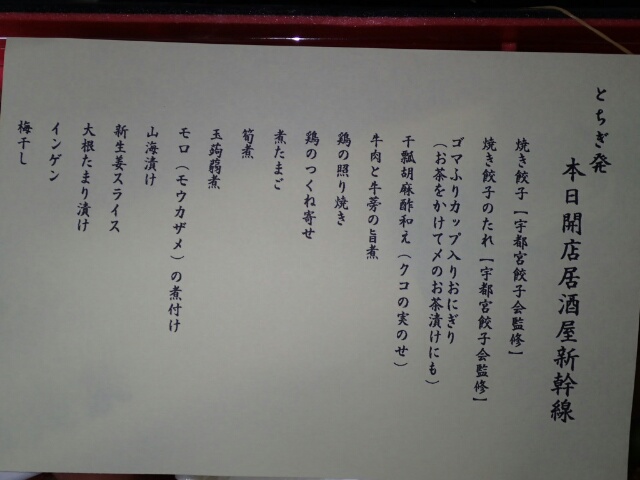 とちぎ発
本日開店居酒屋新幹線
焼き餃子【宇都宮餃子会監修】
焼き餃子のたれ【宇都宮餃子会監修】
ゴマふりカップ入りおにぎり
（お茶をかけて〆のお茶漬けにも）
干瓢胡麻酢和え（クコの実のせ）
牛肉と牛蒡の旨煮
鶏の照り焼き
鶏のつくね寄せ
煮たまご
筍煮
玉蒟蒻煮
モロ（モウカザメ）の煮付け
山海漬け
新生姜スライス
大根たまり漬け
インゲン
梅干し